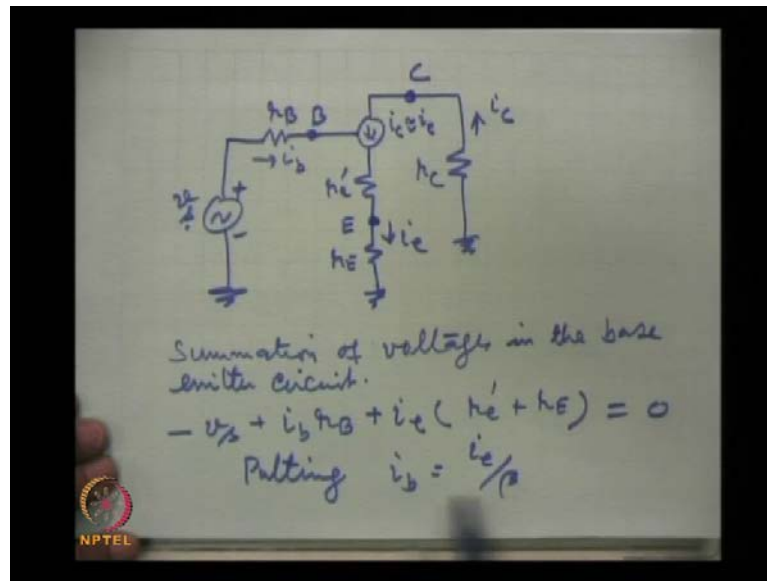 C
r_B B
i_c ≅ i_e
i_c
→ i_b
r_C
r_e'
v_s
+
-
E
↓ i_e
r_E
Summation of voltages in the base
emitter circuit.
- v_s + i_b r_B + i_e ( r_e' + r_E ) = 0
Putting i_b = i_e/β
NPTEL